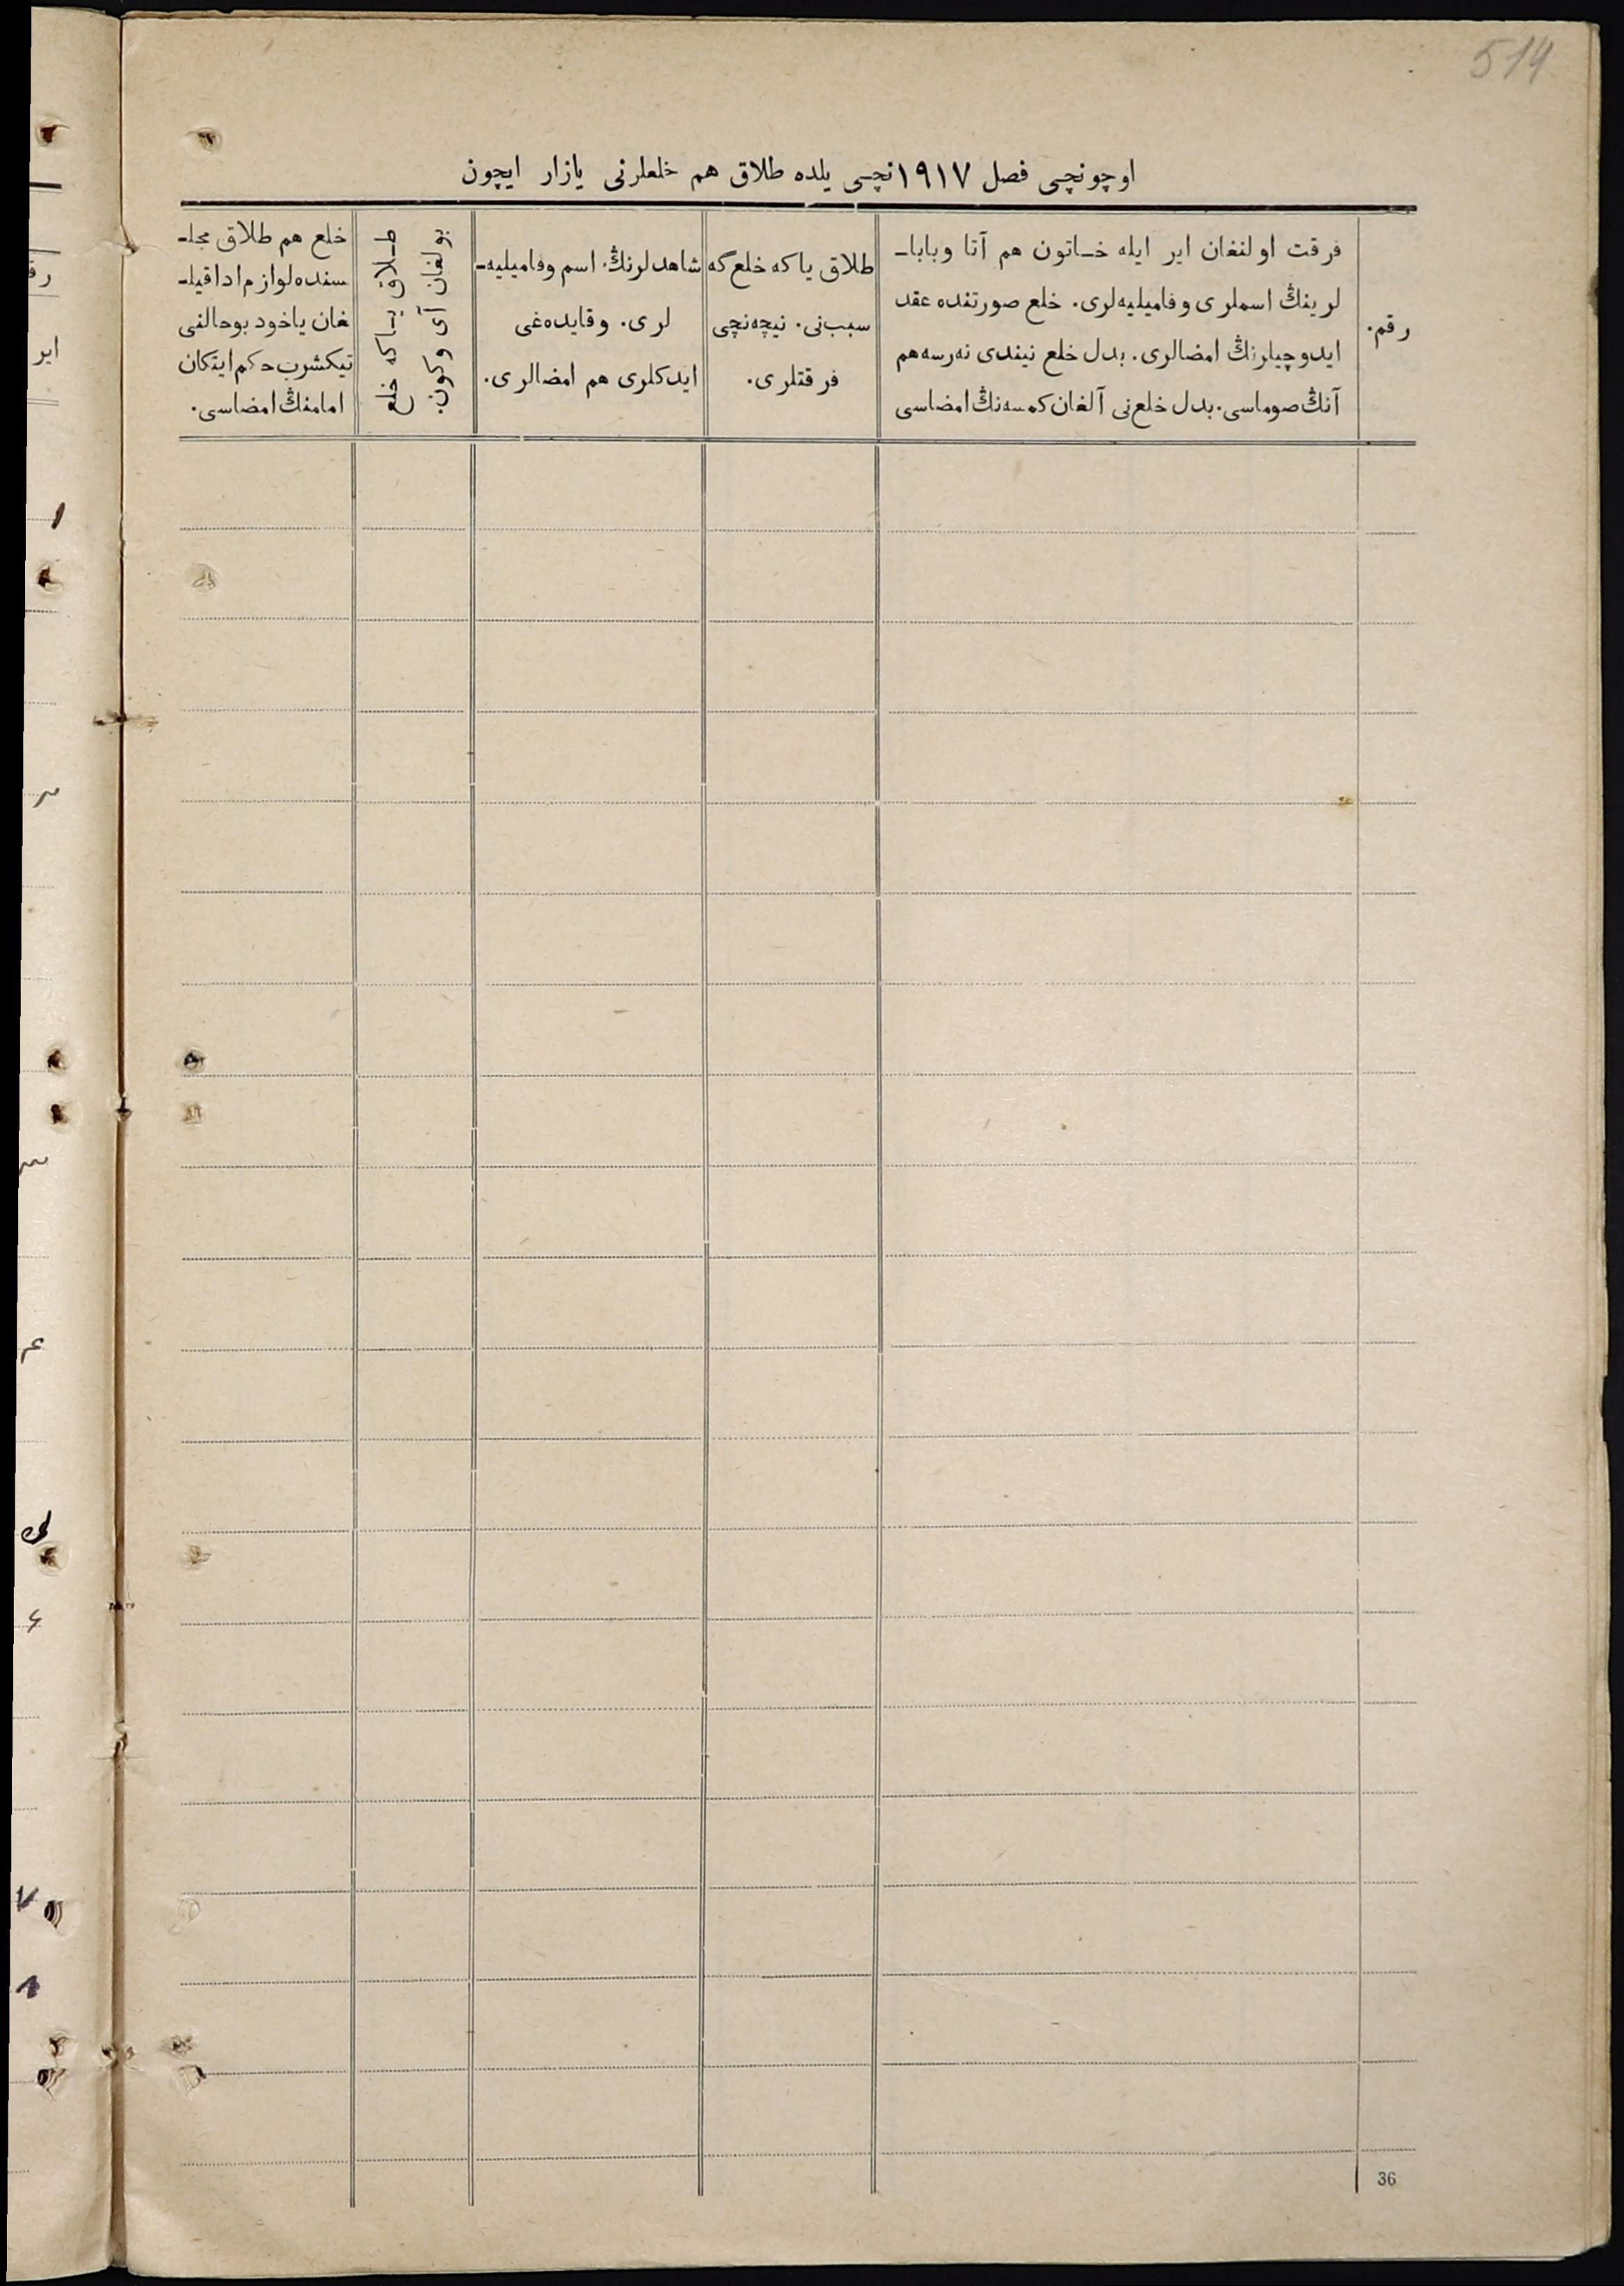 514
اوچونچی فصل ١٩١٧نچی یلده طلاق هم خلعلرنی یازار ایچون
رقم.
فرقت اولنغان ایر ایله خـاتون هم آتا وبابا‌ـ
لرینڭ اسملری وفامیلیه‌لری. خلع صورتنده عقد
ایدوچیلرنڭ امضالری. بدل خلع نیندی نه‌رسه هم
آنڭ صوماسی. بدل خلع‌نی آلغان کمسه‌نڭ امضاسی
طلاق یاکه خلع‌گه
سبب‌نی. نیچه‌نچی
فرقتلری.
شاهدلرنڭ اسم وفامیلیه‌ـ
لری. وقایده‌غی
ایدکلری هم امضالری.
طـلاق یـاکه خلع
بولغان آی وکون.
خلع هم طلاق مجلـ
سنده لوازم ادا قیلـ
غان یاخود بوحالنی
تیکشرب حکم ایتکان
امامنڭ امضاسی.
36
رق
ایر
١
٢
٣
۴
۶
٧
٨